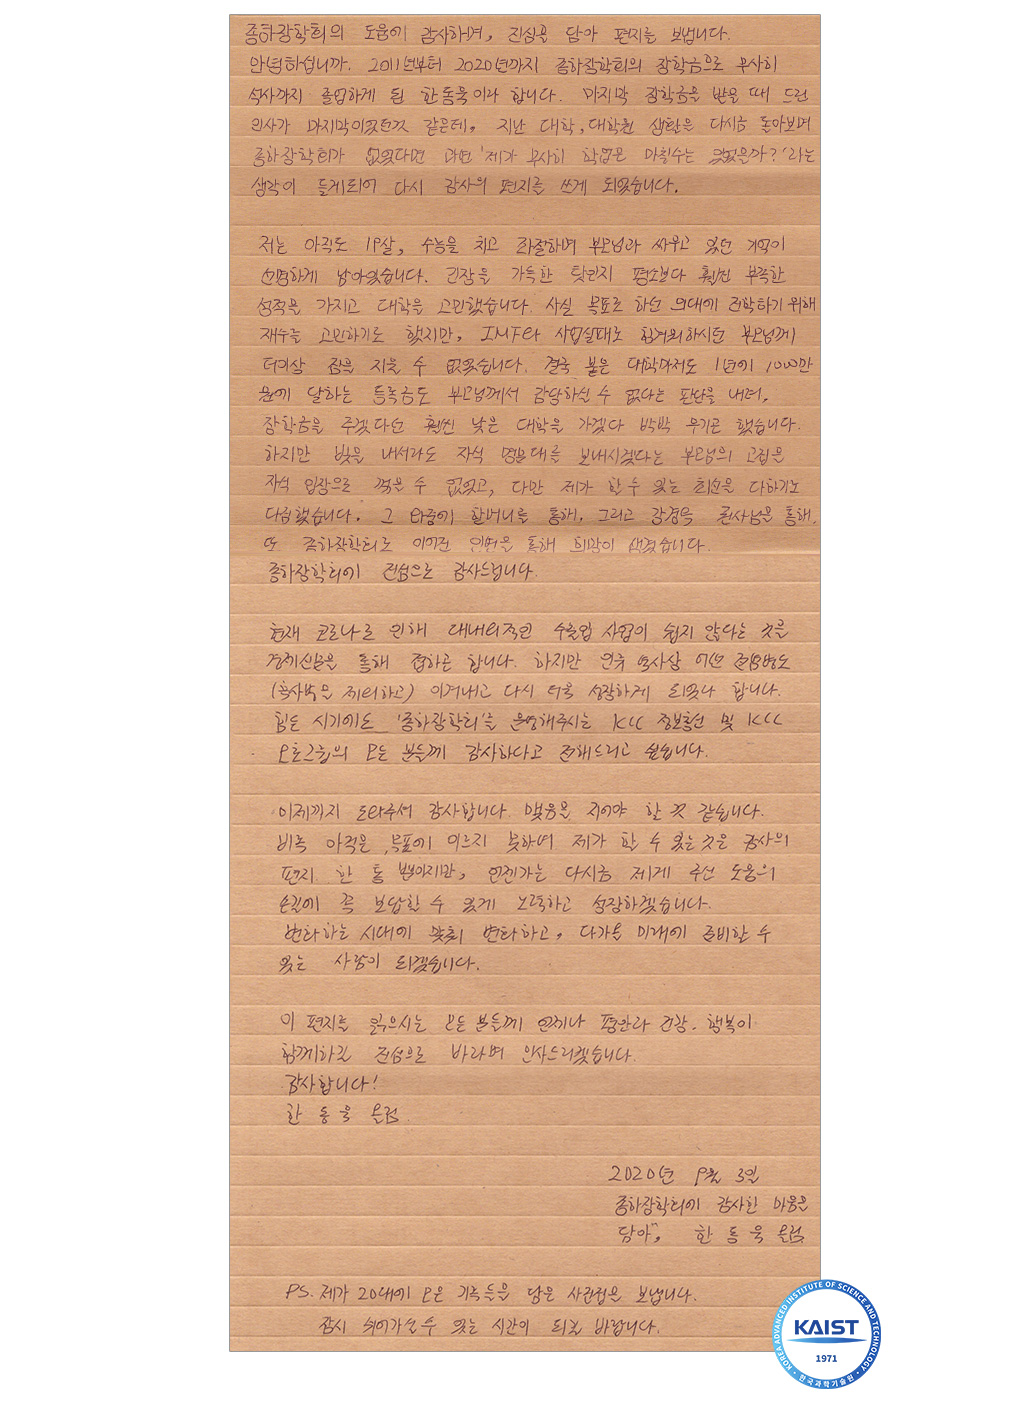 종하장학회의 도움에 감사하며, 진심을 담아 편지를 보냅니다.
안녕하십니까. 2011년부터 2020년까지 종하장학회의 장학금으로 무사히
석사까지 졸업하게 된 한동욱이라 합니다. 마지막 장학금을 받을 때 드린
인사가 마지막이었던것 같은데, 지난 대학, 대학원 생활을 다시금 돌아보며
종하장학회가 없었다면 과연 '제가 무사히 학업을 마칠수는 있었을까?'라는
생각이 들게되어 다시 감사의 편지를 쓰게 되었습니다.
저는 아직도 19살, 수능을 치고 좌절하며 부모님과 싸우고 있던 기억이
선명하게 남아있습니다. 긴장을 가득한 탓인지 평소보다 훨씬 부족한
성적을 가지고 대학을 고민했습니다. 사실 목표로 하던 의대에 진학하기 위해
재수를 고민하기도 했지만, IMF와 사업실패로 힘겨워하시던 부모님께
더이상 짐을 지울 수 없었습니다. 결국 붙은 대학마저도 1년에 1000만
원에 달하는 등록금도 부모님께서 감당하실 수 없다는 판단을 내려,
장학금을 주겠다던 훨씬 낮은 대학을 가겠다 박박 우기곤 했습니다.
하지만 빚을 내서라도 자식 명문대를 보내시겠다는 부모님의 고집을
자식 입장으로 꺾을 수 없었고, 다만 제가 할 수 있는 최선을 다하기로
다짐했습니다. 그 와중에 할머니를 통해, 그리고 강경욱 판사님을 통해,
또 종하장학회로 이어진 인연을 통해 희망이 생겼습니다.
종하장학회에 진심으로 감사드립니다.
현재 코로나로 인해 대내외적인 수출입 사업이 쉽지 않다는 것을
경제신문을 통해 접하곤 합니다. 하지만 인류 역사상 어떤 전염병도
(흑사병을 제외하고) 이겨내고 다시 더욱 성장하게 되었다 합니다.
힘든 시기에도 '종하장학회'를 운영해주시는 KCC 정보통신 및 KCC
오토그룹의 모든 분들께 감사하다고 전해드리고 싶습니다.
이제까지 도와주셔서 감사합니다. 맺음을 지어야 할 것 같습니다.
비록 아직은 목표에 이르지 못하여 제가 할 수 있는 것은 감사의
편지 한 통 뿐이지만, 언젠가는 다시금 제게 주신 도움의
손길에 꼭 보답할 수 있게 노력하고 성장하겠습니다.
변화하는 시대에 맞춰 변화하고, 다가올 미래에 준비할 수
있는 사람이 되겠습니다.
이 편지를 읽으시는 모든 분들께 언제나 평안과 건강, 행복이
함께하길 진심으로 바라며 인사드리겠습니다.
감사합니다!
한 동 욱 올림.
2020년 9월 3일
종하장학회에 감사한 마음을
담아, 한 동 욱 올림
PS. 제가 20대에 모은 기록들을 담은 사진첩을 보냅니다.
잠시 쉬어가실 수 있는 시간이 되길 바랍니다.
KOREA ADVANCED INSTITUTE OF SCIENCE AND TECHNOLOGY
KAIST
1971
한국과학기술원